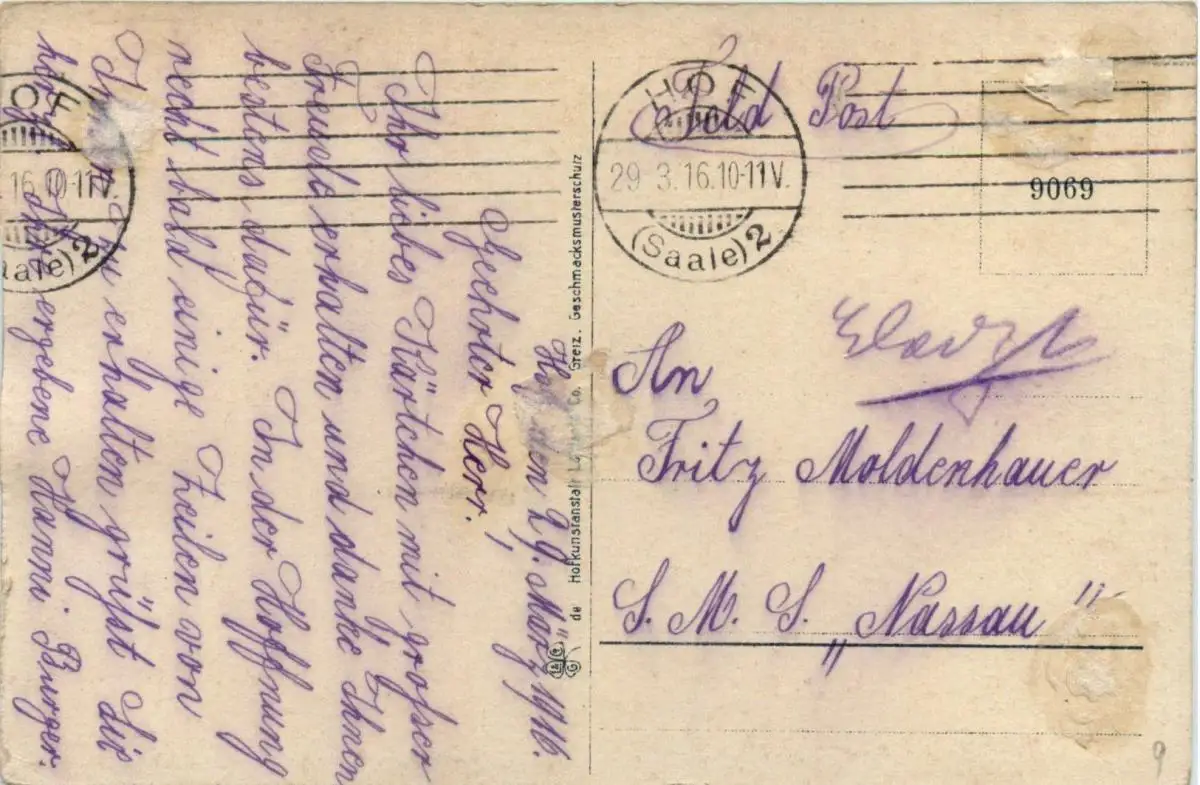 Hof, den 29. März 1916.
Geehrter Herr!
Ihr liebes Kärtchen mit grosser
Freude erhalten und danke Ihnen
bestens dafür. In der Hoffnung
recht bald einige Zeilen von
Ihnen zu erhalten grüsst Sie
ergebene Hanni Burger.
Hofkunstanstalt Co. Greiz. Geschmacksmusterschutz
Feld Post
HOF
29 3.16.10-11V.
(Saale) 2
OF
16.10-11V.
aale) 2
9069
An
Fritz Moldenhauer
S. M. S. „Nassau"
9